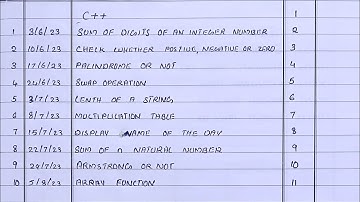 C++ 1
1 3/6/23 SUM OF DIGITS OF AN INTEGER NUMBER 2
2 10/6/23 CHECK WHETHER POSTIVE, NEGATIVE OR ZERO 3
3 17/6/23 PALINDROME OR NOT 4
4 24/6/23 SWAP OPERATION 5
5 3/7/23 LENTH OF A STRING 6
6 8/7/23 MULTIPLICATION TABLE 7
7 15/7/23 DISPLAY NAME OF THE DAY 8
8 22/7/23 SUM OF N NATURAL NUMBER 9
9 29/7/23 ARMSTRONG OR NOT 10
10 5/8/23 ARRAY FUNCTION 11